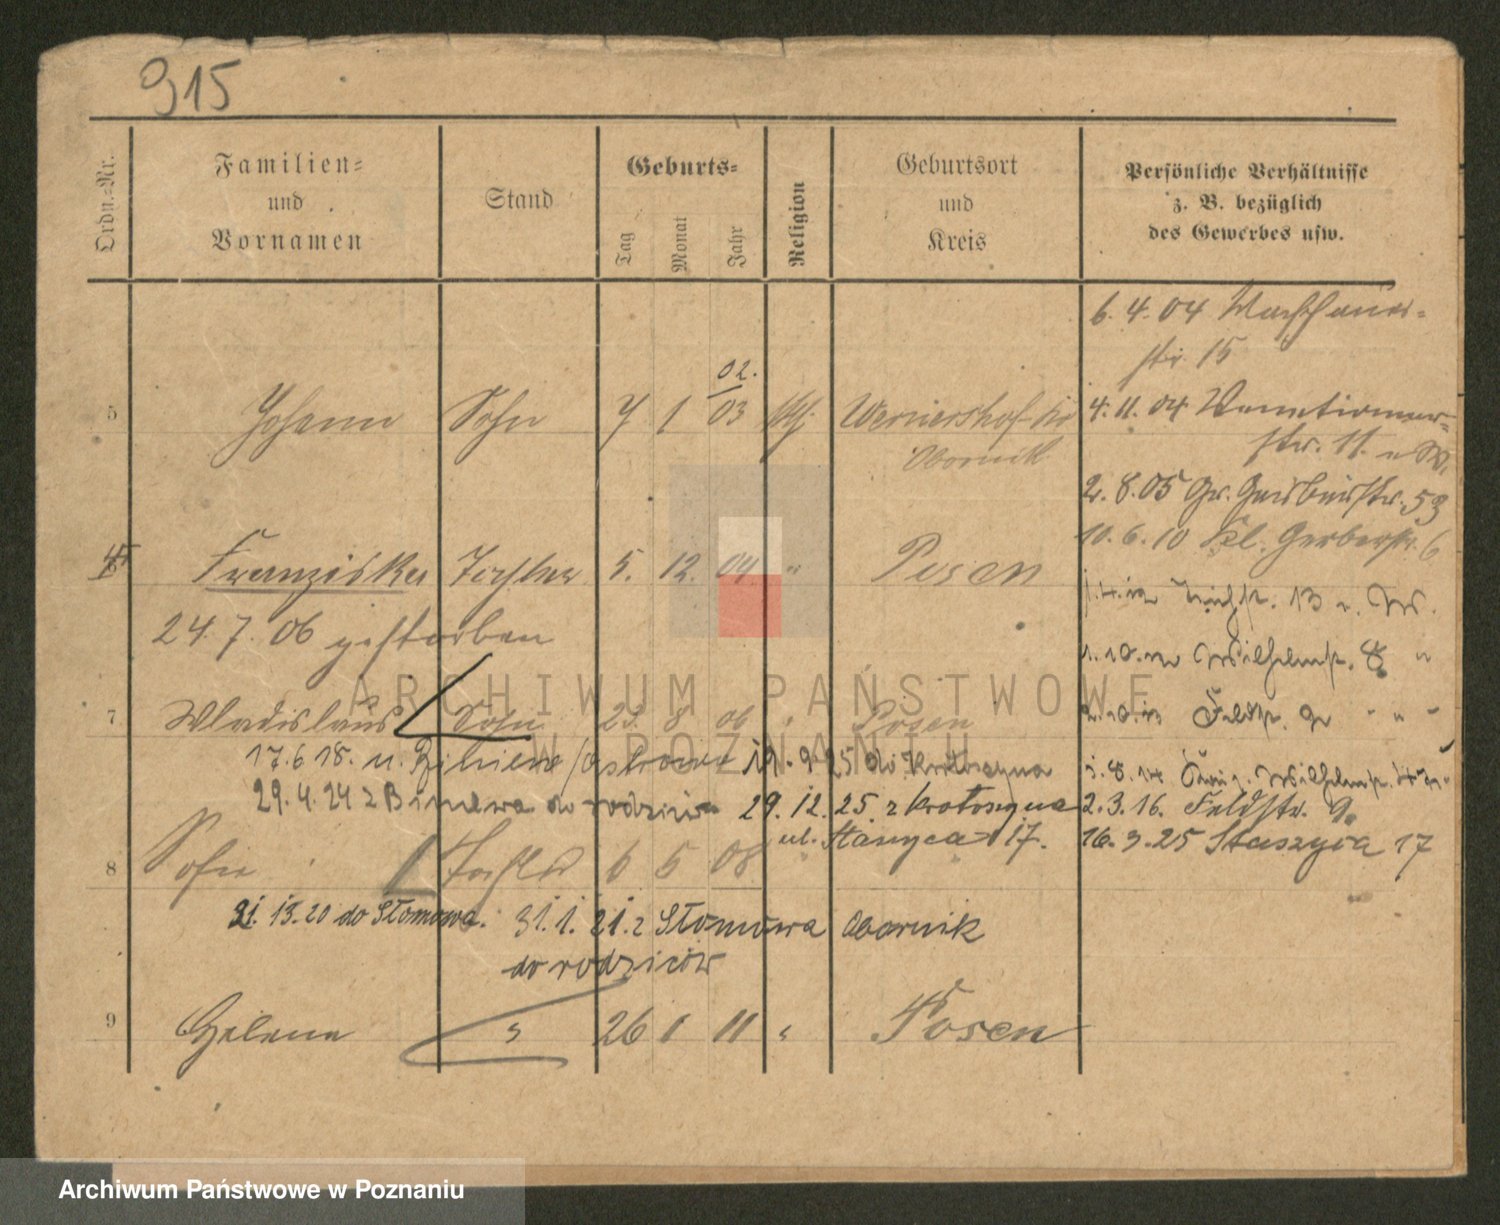 915
Ordn.-Nr.
Familien-
und
Vornamen
Stand
Geburts-
Tag
Monat
Jahr
Religion
Geburtsort
und
Kreis
Persönliche Verhältnisse
z. B. bezüglich
des Gewerbes usw.
6. 4. 04
str. 15
02.
5 Johann Sohn 7 1 03 kth. Wernershof Kr
Obornik
4. 11. 04
str. 11.
2. 8. 05 Gr. Gerberstr. 53
10. 6. 10 Kl. Gerberstr. 6
6 Franziska Tochter 5. 12. 04 " Posen
24. 7. 06 gestorben
13
Wilhelmstr. 8 "
7 Wladislaus Sohn 23 8 06 " Posen
Feldstr. 9
17. 6 18. n. 19. 9 25 do Krotoszyna
29. 4. 24 z do rodziców 29. 12. 25. z Krotoszyna
ul. Staszyca 17.
2. 3. 16. Feldstr. 9.
16. 3. 25 Staszyca 17
8 Sofie Tochter 6 5 08
20 do Słomowa. 31. 1. 21. z Słomowa Obornik
do rodziców
9 Helena " 26 1 11 " Posen
ARCHIWUM PAŃSTWOWE
W POZNANIU
Archiwum Państwowe w Poznaniu